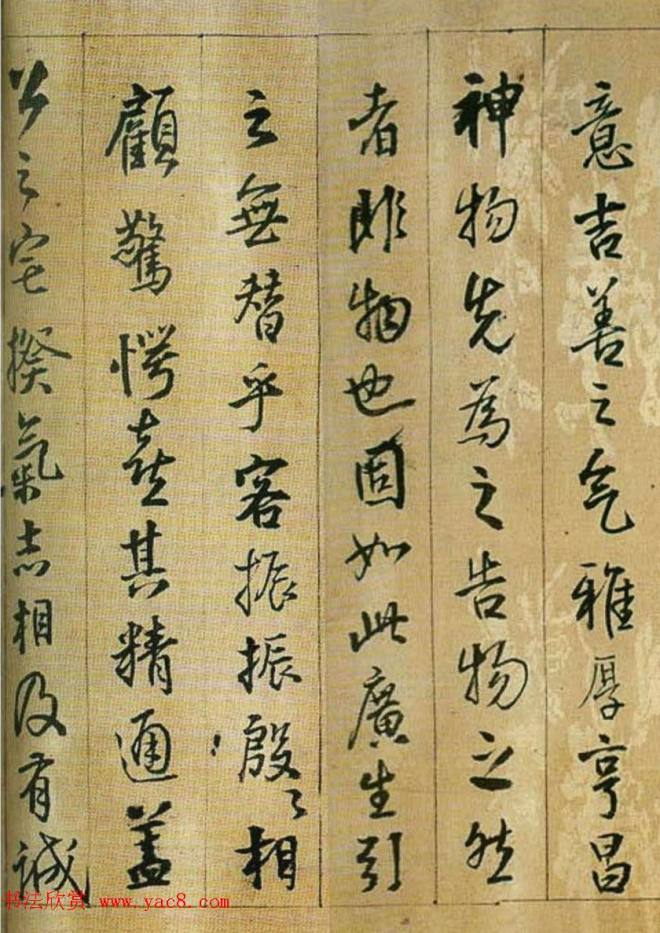 意吉善之气雅厚亨昌
神物先為之告物之然
者非物也固如此廣生引
之無替乎客振振殷殷相
顧驚愕意其精通蓋
公之宅揆氣志相及有誠
书法欣赏 www.yac8.com